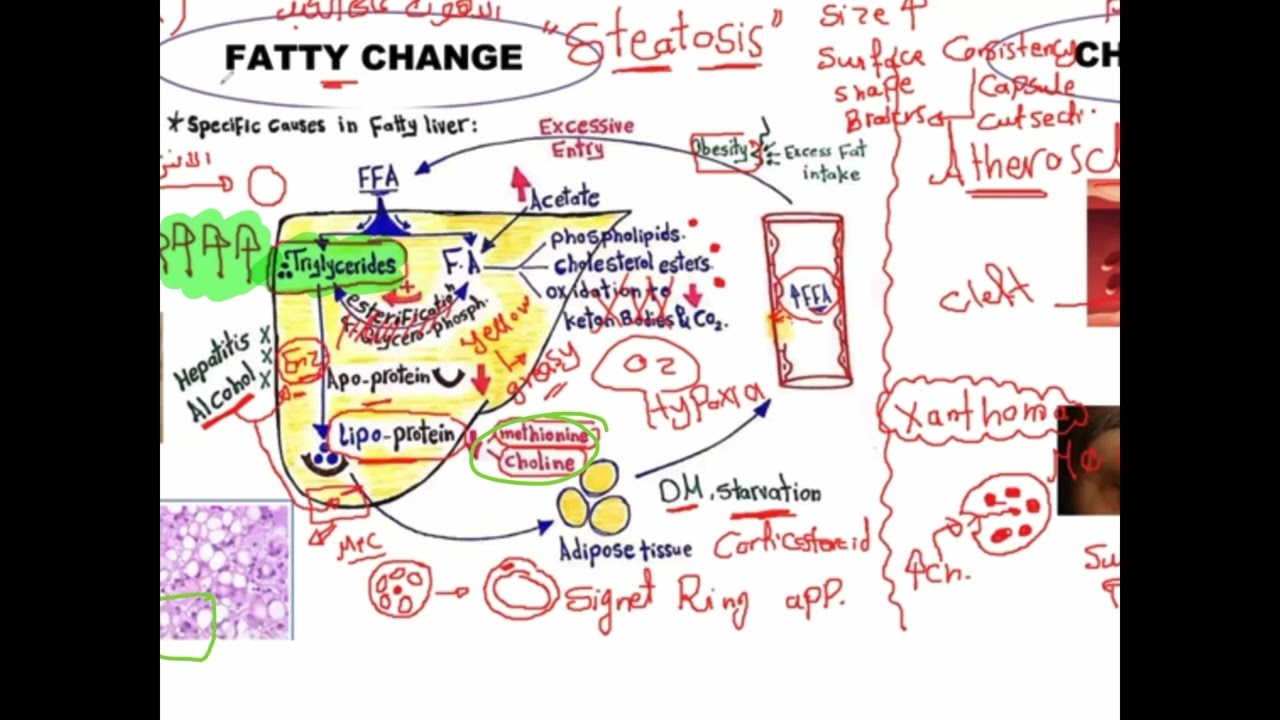 "Steatosis"
FATTY CHANGE
size ↑
Surface
shape
Consistency
CH
Capsule
cut secti.
*Specific Causes in Fatty liver:
Excessive
Entry
Obesity
Excess Fat
intake
Atheroscl
FFA
Acetate
Triglycerides
F.A
phospholipids.
cholesterol esters
oxidation to
keton Bodies & Co₂.
↑FFA
+
esterification
Glycero-phosph.
Yellow
greasy
cleft
Hepatitis
Alcohol
Enz
Apo-protein
O2
Hypoxia
Xanthoma
Lipo-protein
methionine
choline
DM, starvation
Adipose tissue
Corticosteroid
Signet Ring app.
↑Ch.
Su